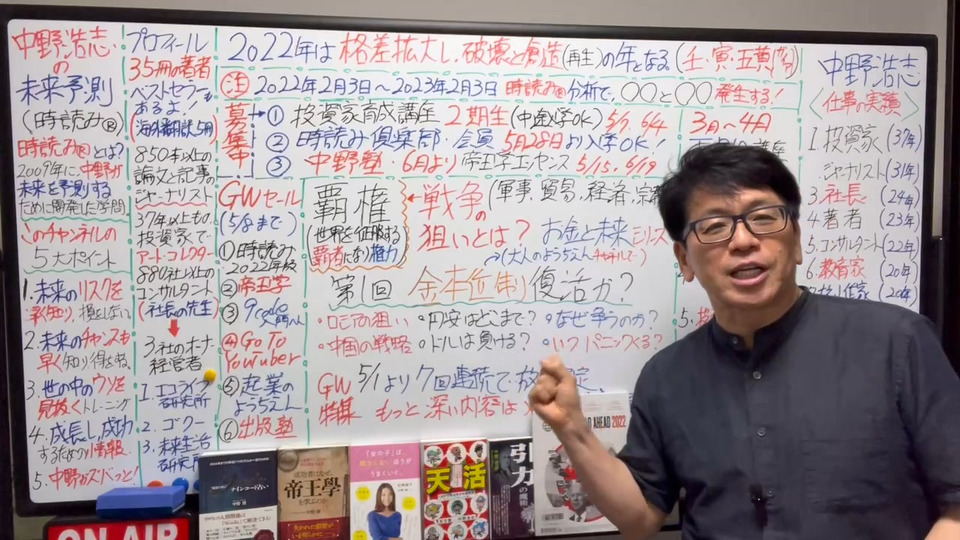 中野浩志
の
未来予測
(時読み®)
時読み®とは?
2009年に、中野が
未来を予測する
ために開発した学問
このチャンネルの
5大ポイント
1.未来のリスクを
早く知り、損をしない
2.未来のチャンスも
早く知り得をする
3.世の中のウソを
見抜くトレーニング
4.成長し成功
するための情報
5.中野がズバッと!
プロフィール
35冊の著者
ベストセラーも
あるよ!
海外翻訳5冊
850本以上の
論文と記事の
ジャーナリスト
37年以上も、
投資家で
アートコレクター
880社以上の
コンサルタント
(社長の先生)
3社のオーナー
経営者
1.エコライフ
研究所
2.ゴクー
3.未来生活
研究所
2022年は格差拡大し、破壊と創造(再生)の年となる(壬・寅・五黄
注 2022年2月3日〜2023年2月3日 時読み®分析で、〇〇と〇〇発生する!
募集中
① 投資家育成講座 2期生(中途入学OK) 5/7、6/4
② 時読み倶楽部・会員 5月28日より入学OK!
③ 中野塾・6月より 帝王学エッセンス 5/15、6/19
3月〜4月
GWセール
(5/8まで)
①時読み
2022年版
②帝王学
③9code
入門
④Go To
YouTuber
⑤起業の
ようちえん
⑥出版塾
覇権
(世界を征服する
覇者になり権力)
←戦争の(軍事、貿易、経済、宗
狙いとは? お金と未来シリーズ
(大人のようちえんチャンネル)
第1回 金本位制復活か?
・ロシアの狙い ・円安はどこまで? ・なぜ争うのか?
・中国の戦略 ・ドルは負ける? ・いつパニックくる?
GW 5/1より7回連続で、放
特集 もっと深い内容は
中野浩志
〈仕事の実績〉
1 投資家(37年)
ジャーナリスト(31年)
3.社長(24年)
4 著者(23年)
5.コンサルタント(22年)
6.教育家(20年)
ナインコード占い
帝王學
「女の子」は
天活
引力
AHEAD 2022
ON AIR